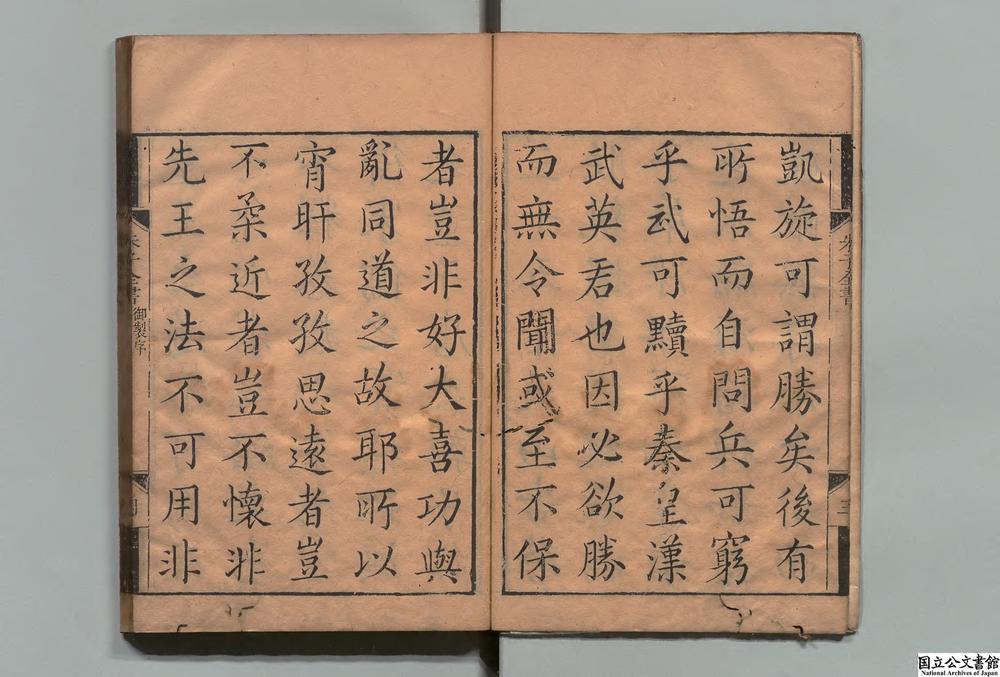 凱旋可謂勝矣後有
所悟而自問兵可窮
乎武可黷乎秦皇漢
武英君也因必欲勝
而無令聞或至不保
者豈非好大喜功與
亂同道之故耶所以
宵旰孜孜思遠者豈
不柔近者豈不懷非
先王之法不可用非
朱子全書
御製序
国立公文書館
National Archives of Japan